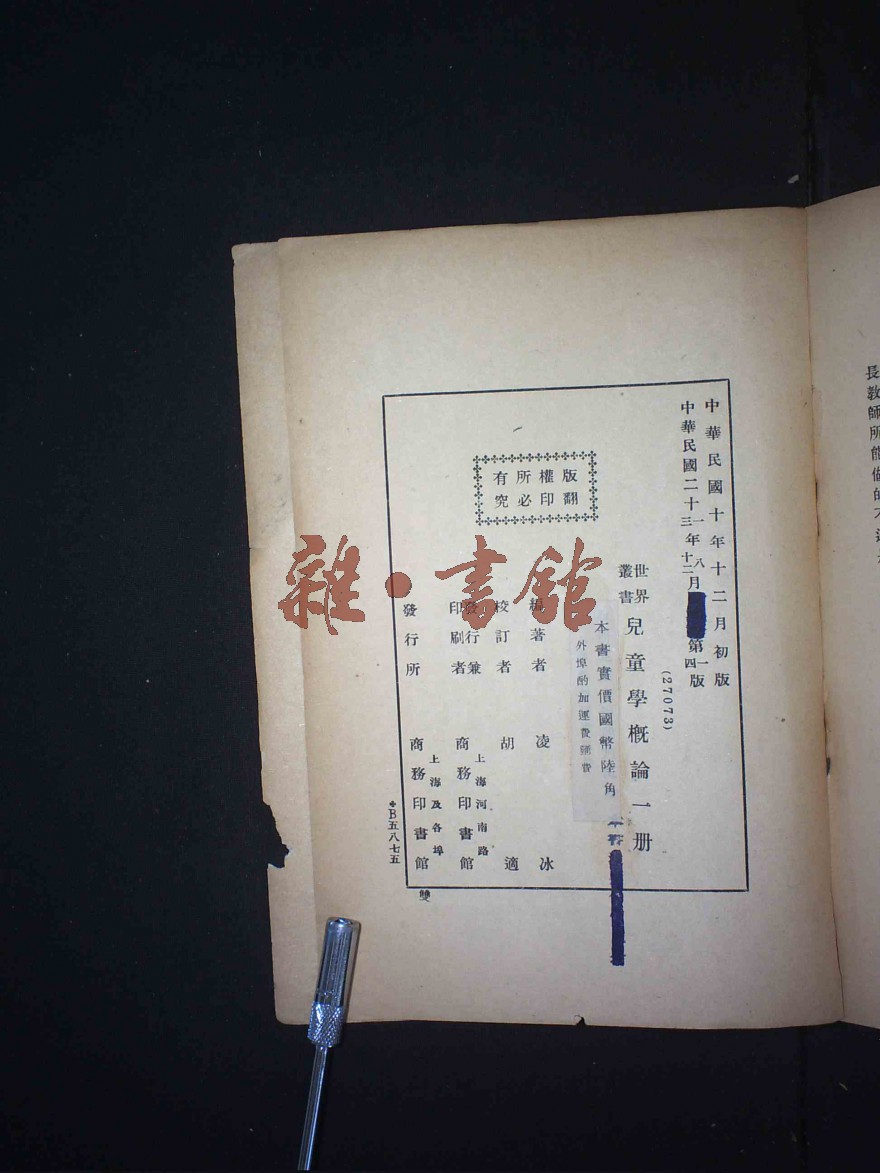 中華民國十年十二月初版
中華民國二十三年十二月
一八
第四版
一
(27073)
世界
叢書
兒童學概論一册
本書實價國幣陸角
外埠酌加運費匯費
編著者 凌冰
校訂者 胡適
發行兼
印刷者
上海河南路
商務印書館
發行所
上海及各埠
商務印書館
版權所有
翻印必究
B五八七五
雙
雜·書館
長教師所能做的不